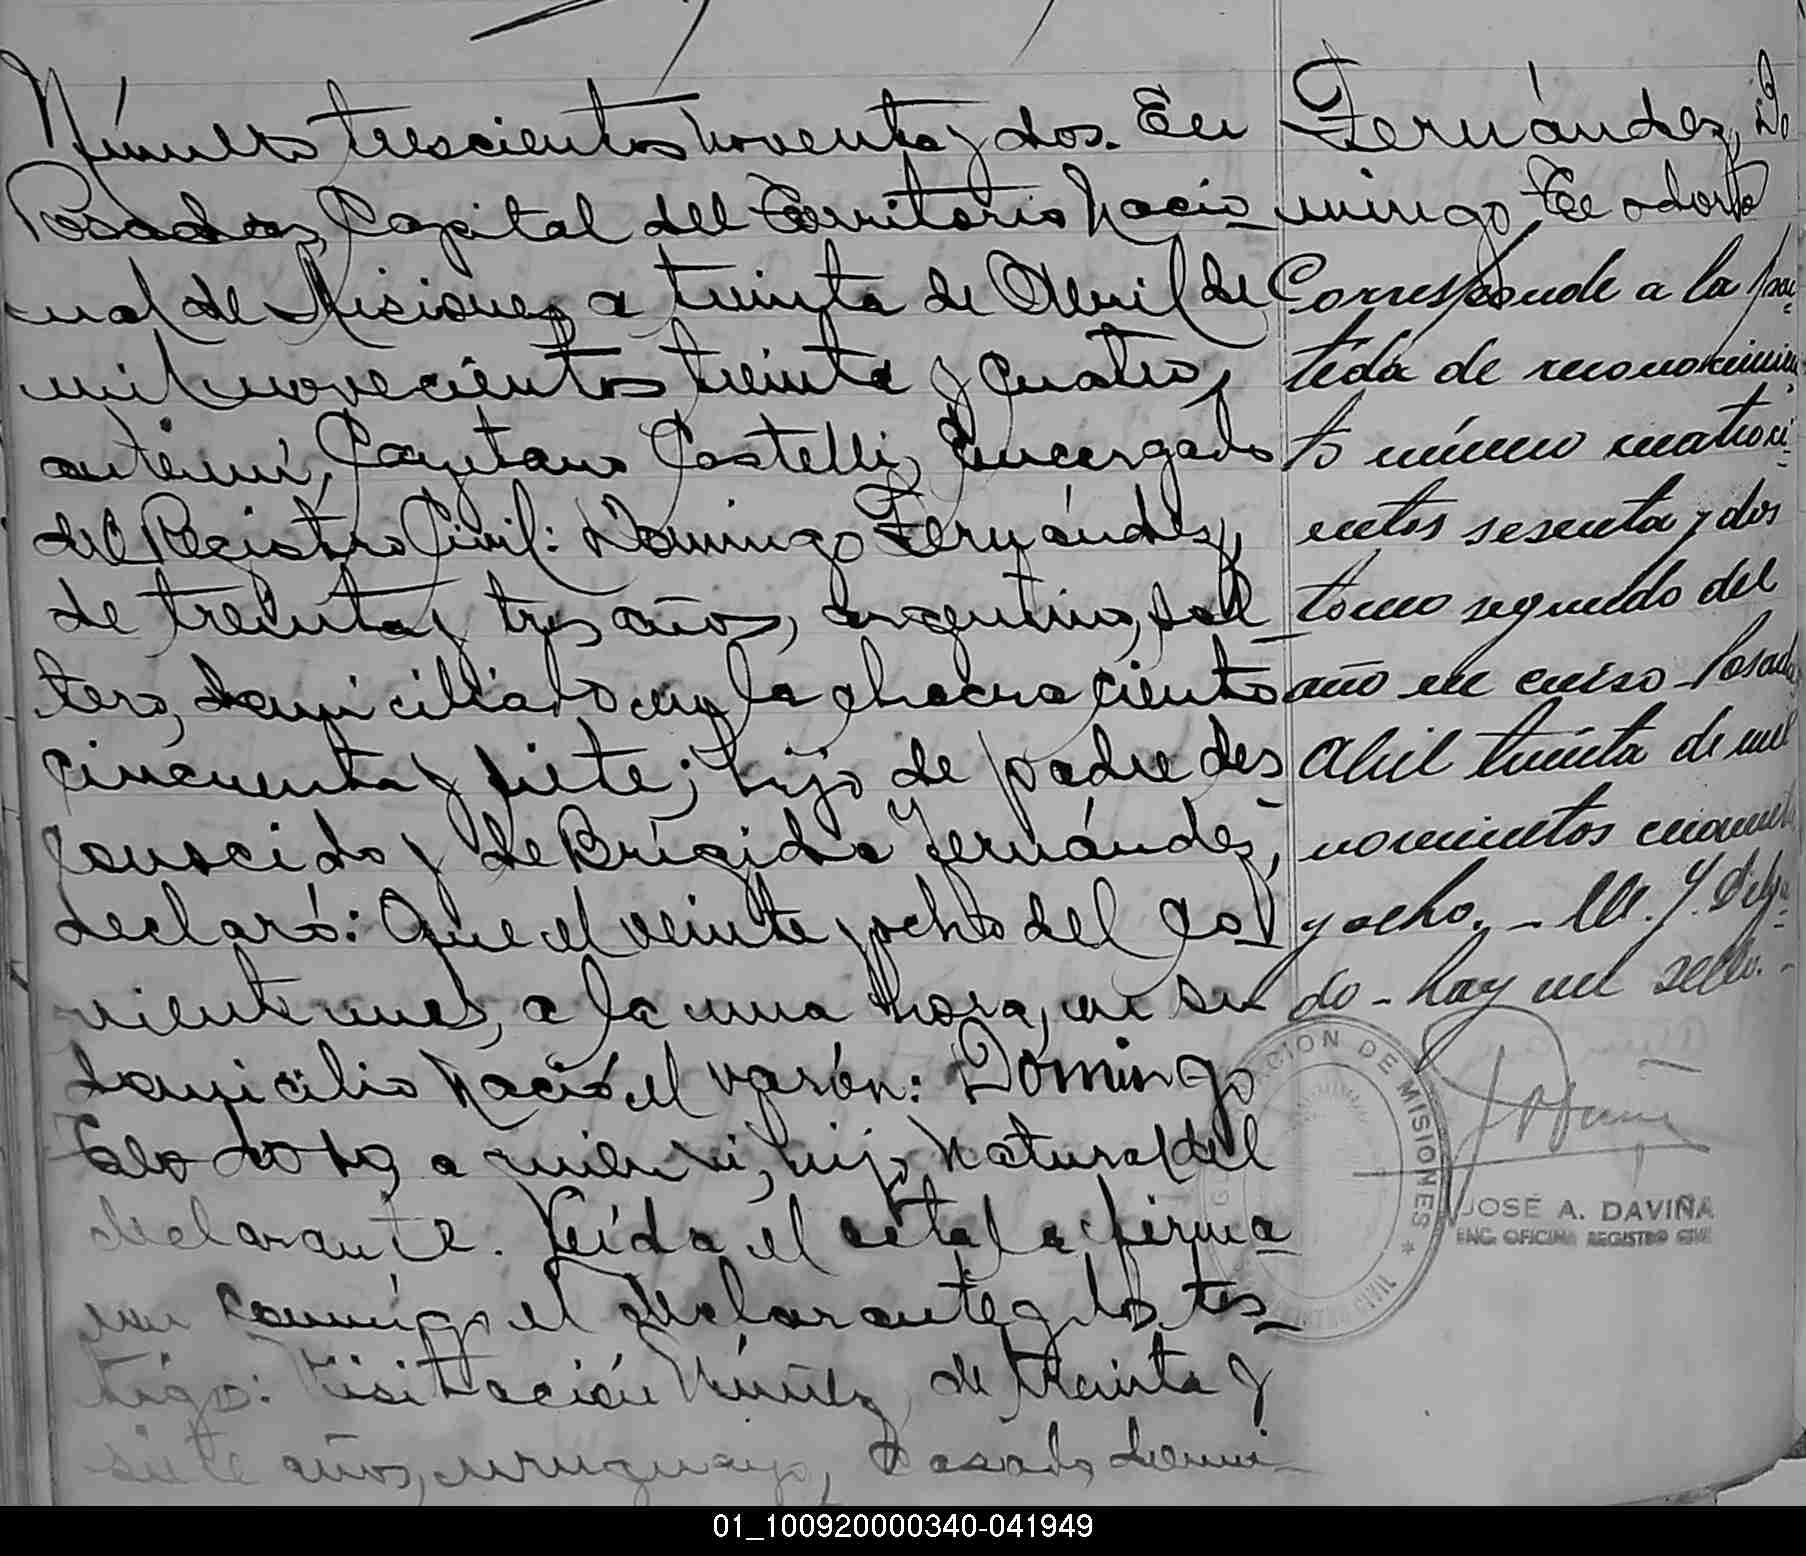 Número trescientos noventa y dos. En
Posadas, Capital del Territorio Nacio-
nal de Misiones, a treinta de Abril de
mil novecientos treinta y cuatro,
ante mí, Cayetano Castelli, Encargado
del Registro Civil: Domingo Fernández,
de treinta y tres años, argentino, sol-
tero, domiciliado en la chacra ciento
cincuenta y siete; hijo de padre des-
conocido y de Brígida Fernández,
declaró: Que el veinte y ocho del co-
rriente mes, a la una hora, en su
domicilio nació el varón: Domingo
Teodoro, a quien vi, hijo natural del
declarante. Leída el acta la firma-
ron conmigo el declarante y los tes-
tigo: Visitación Núñez, de treinta y
siete años, uruguayo, casado, domi-
Fernández, Do
mingo Teodoro
Corresponde a la par-
tida de reconocimien-
to número cuatroci-
entos sesenta y dos
tomo segundo del
año en curso - Posadas,
Abril treinta de mil
novecientos cuarenta
y ocho. - M. Y. Delga-
do - hay un sello. -
GOBERNACION DE MISIONES
REGISTRO CIVIL
JOSÉ A. DAVIÑA
ENC. OFICINA REGISTRO CIVIL
01_100920000340-041949